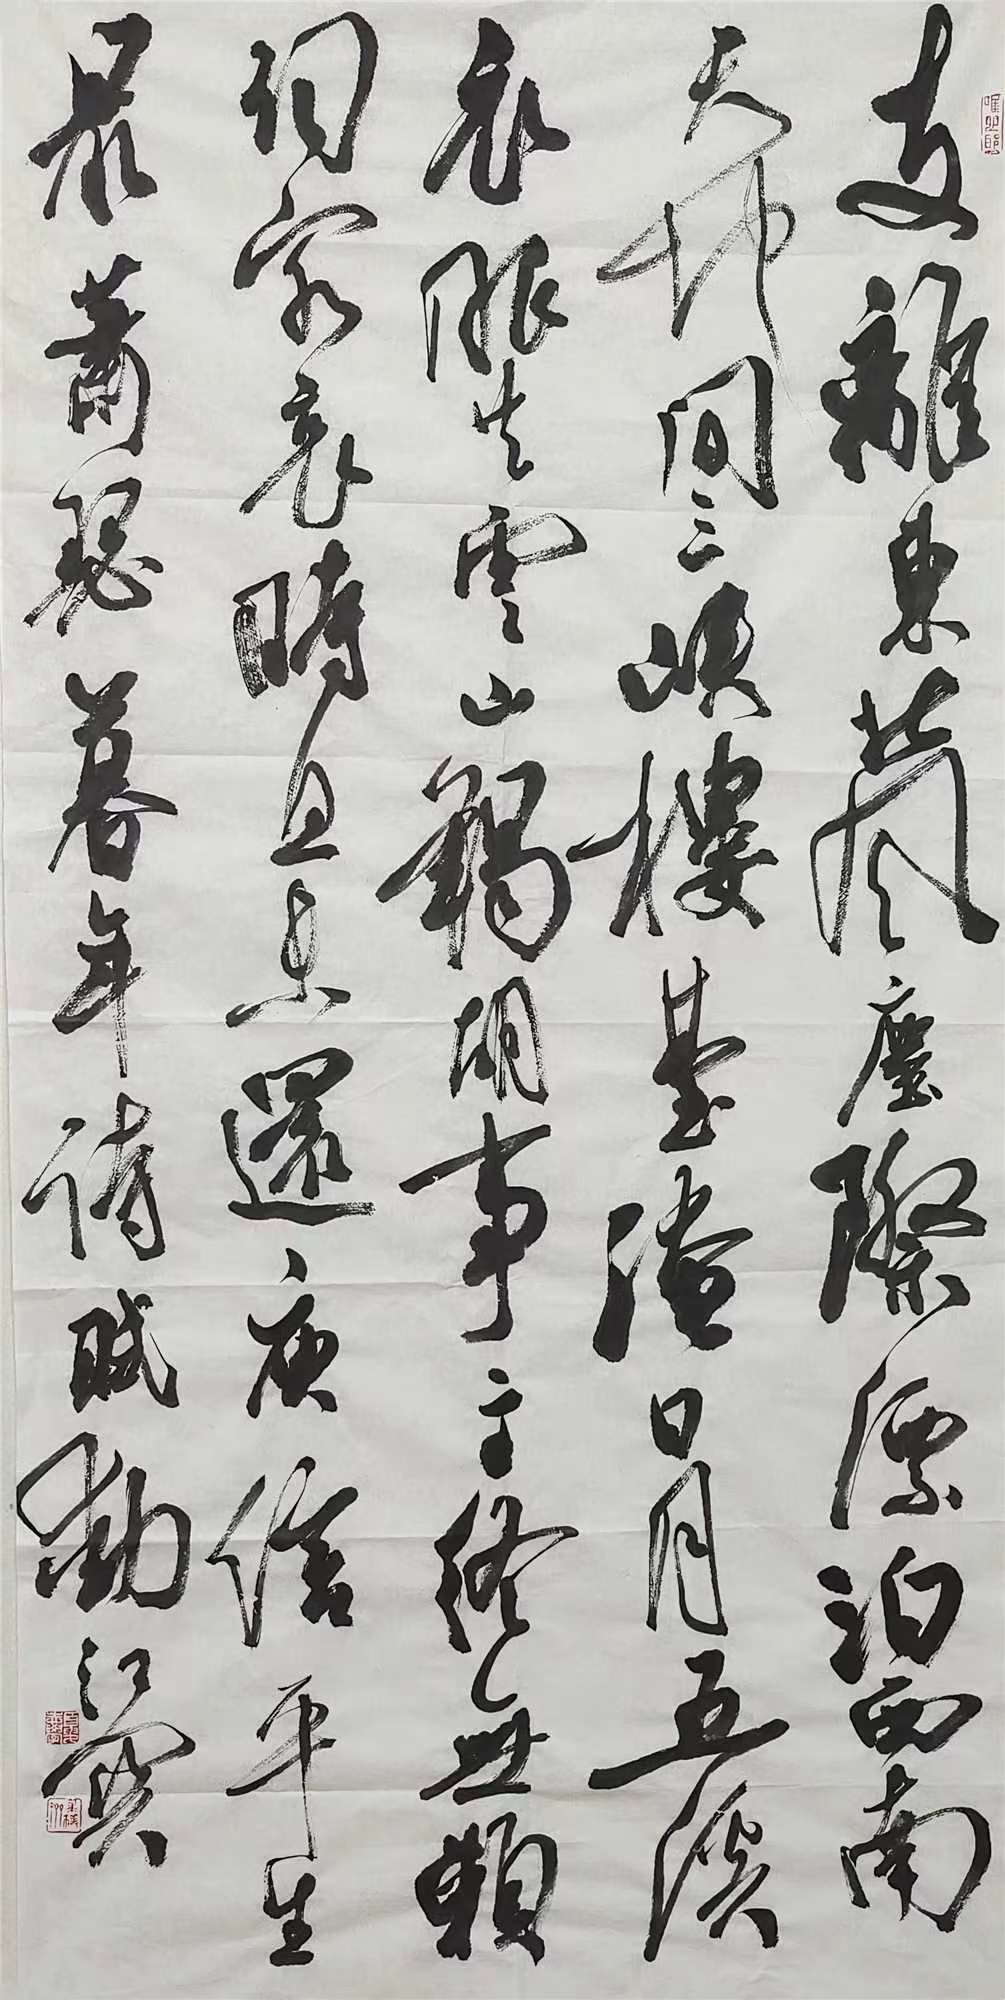 支離東北風塵際漂泊西南
天地間三峽樓臺淹日月五溪
衣服共雲山羯胡事主終無賴
詞客哀時且未還庾信平生
最蕭瑟暮年詩賦動江關